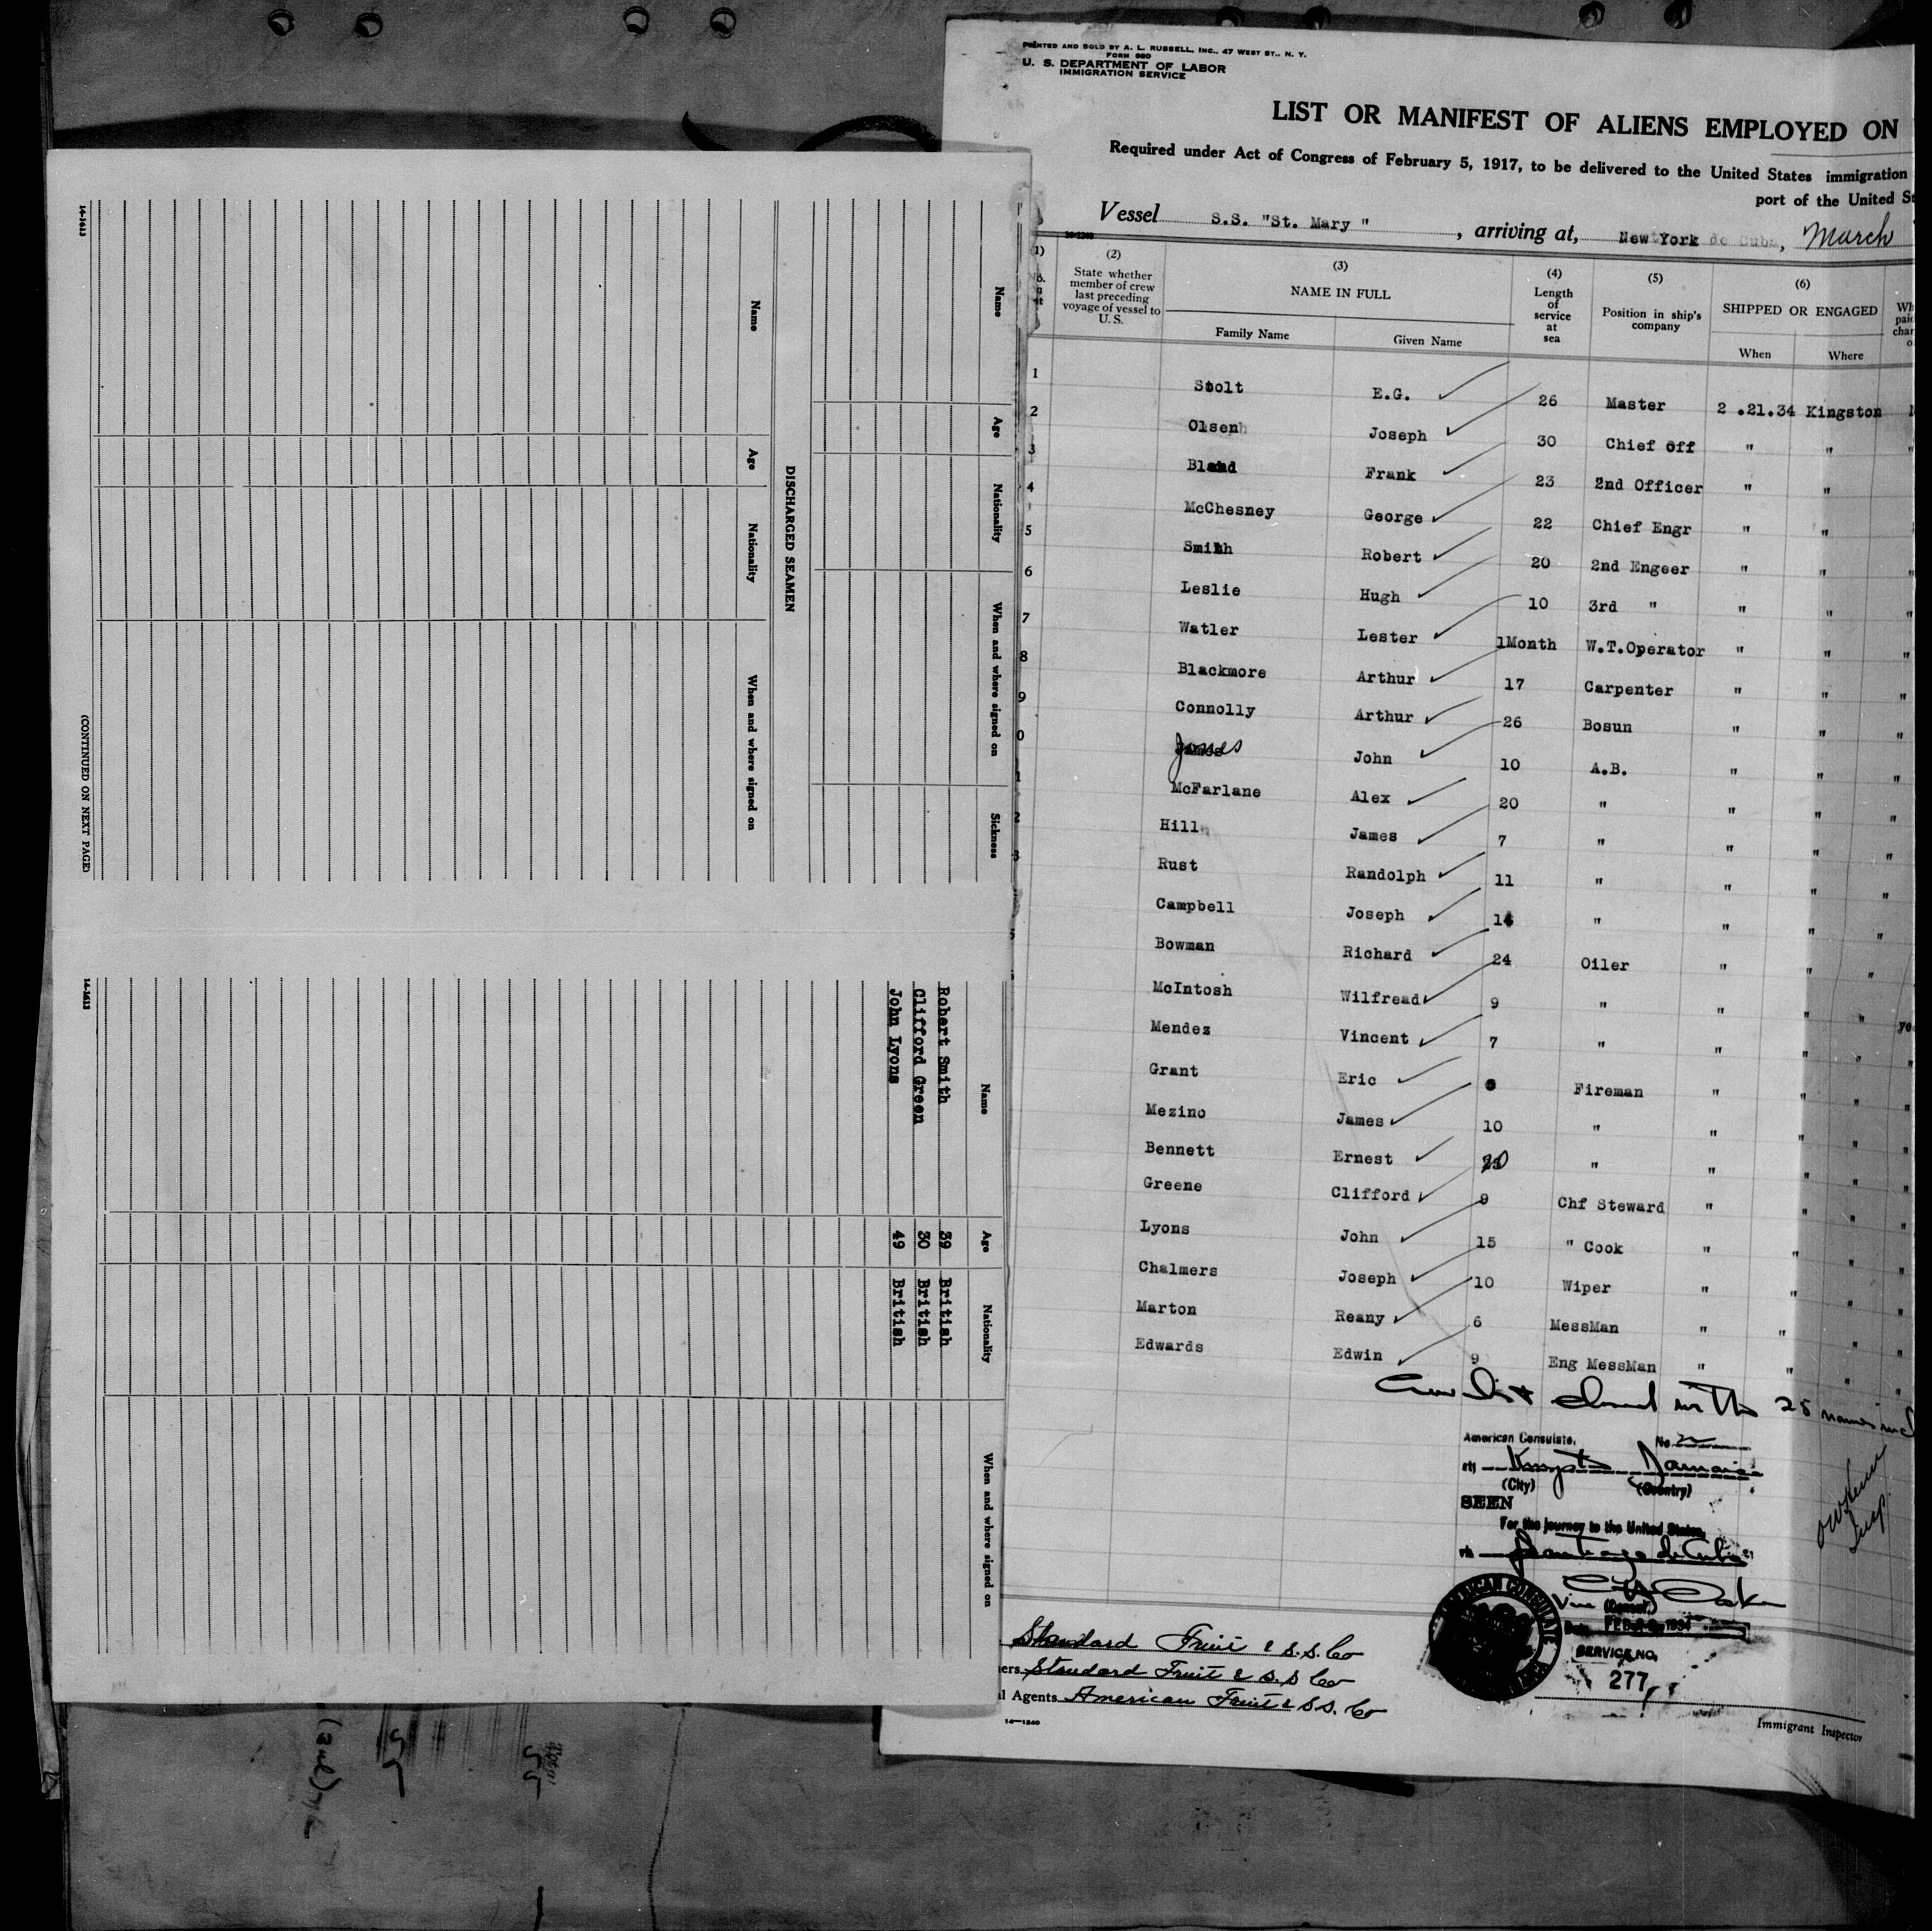 PRINTED AND SOLD BY A. L. RUSSELL, INC., 47 WEST ST., N. Y.
FORM 680
U. S. DEPARTMENT OF LABOR
IMMIGRATION SERVICE
LIST OR MANIFEST OF ALIENS EMPLOYED ON
Required under Act of Congress of February 5, 1917, to be delivered to the United States immigration
port of the United St
Vessel S.S. "St. Mary ", arriving at, New York de Cuba, March
(1) (2) (3) (4) (5) (6)
State whether member of crew last preceding voyage of vessel to U. S.
NAME IN FULL
Family Name Given Name
Length of service at sea
Position in ship's company
SHIPPED OR ENGAGED
When Where
1 Stolt E.G. 26 Master 2 .21.34 Kingston
2 Olsen Joseph 30 Chief Off " "
3 Bland Frank 23 2nd Officer " "
4 McChesney George 22 Chief Engr " "
5 Smith Robert 20 2nd Engeer " "
6 Leslie Hugh 10 3rd " " "
7 Watler Lester 1Month W.T.Operator " "
8 Blackmore Arthur 17 Carpenter " "
9 Connolly Arthur 26 Bosun " "
0 Jones John 10 A.B. " "
McFarlane Alex 20 " " "
Hill James 7 " " "
Rust Randolph 11 " " "
Campbell Joseph 14 " " "
Bowman Richard 24 Oiler " "
McIntosh Wilfread 9 " " "
Mendez Vincent 7 " " "
Grant Eric Fireman " "
Mezino James 10 " " "
Bennett Ernest 20 " " "
Greene Clifford 9 Chf Steward " "
Lyons John 15 " Cook " "
Chalmers Joseph 10 Wiper " "
Marton Reany 6 MessMan " "
Edwards Edwin 9 Eng MessMan " "
Crew list closed with 25 names incl
American Consulate, No
at Kingston Jamaica
(City) (Country)
SEEN
For the journey to the United States,
via Santiago de Cuba
Vice (Consul)
Date FEB 1934
SERVICE NO.
277
AMERICAN CONSULATE
Immigrant Inspector
Standard Fruit & S.S. Co
ers Standard Fruit & S.S Co
l Agents American Fruit & S.S. Co
14—1240
Name Age Nationality When and where signed on Sickness
DISCHARGED SEAMEN
Name Age Nationality When and where signed on
(CONTINUED ON NEXT PAGE)
14-1413
Name Age Nationality When and where signed on
Robert Smith 39 British
Clifford Green 30 British
John Lyons 49 British
14-1413